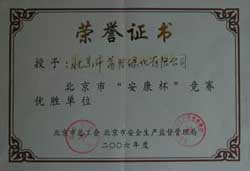 荣誉证书
授予：
北京市“安康杯”竞赛
优胜单位
北京市总工会 北京市安全生产监督管理局
二〇〇六年度